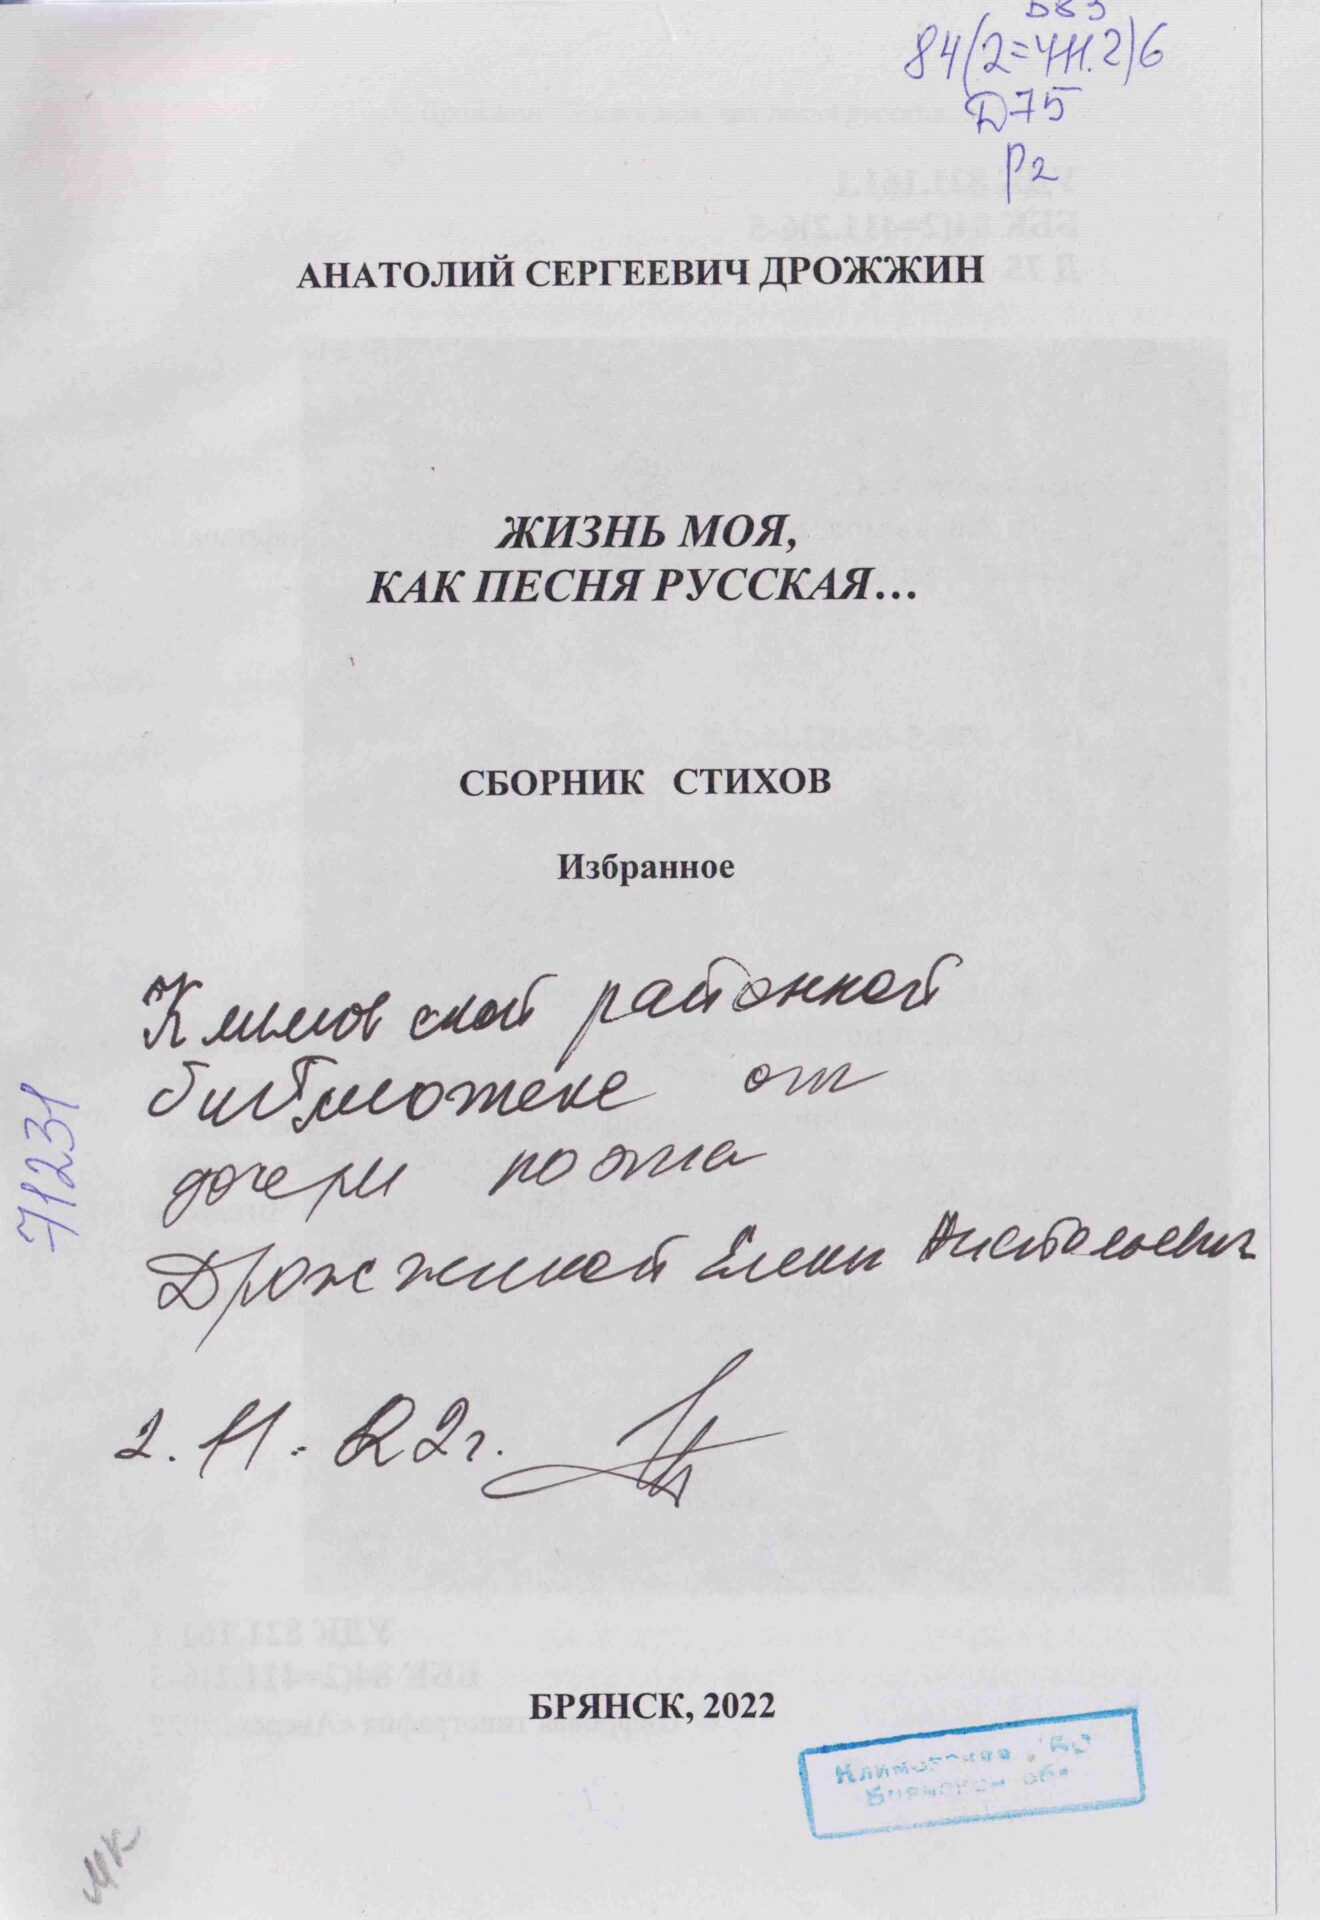 84(2=411.2)6
Д75
Р2
АНАТОЛИЙ СЕРГЕЕВИЧ ДРОЖЖИН
ЖИЗНЬ МОЯ,
КАК ПЕСНЯ РУССКАЯ…
СБОРНИК СТИХОВ
Избранное
Климовской районной
библиотеке от
дочери поэта
Дрожжиной Елены
2.11.22г.
71231
БРЯНСК, 2022
Климовская
МК